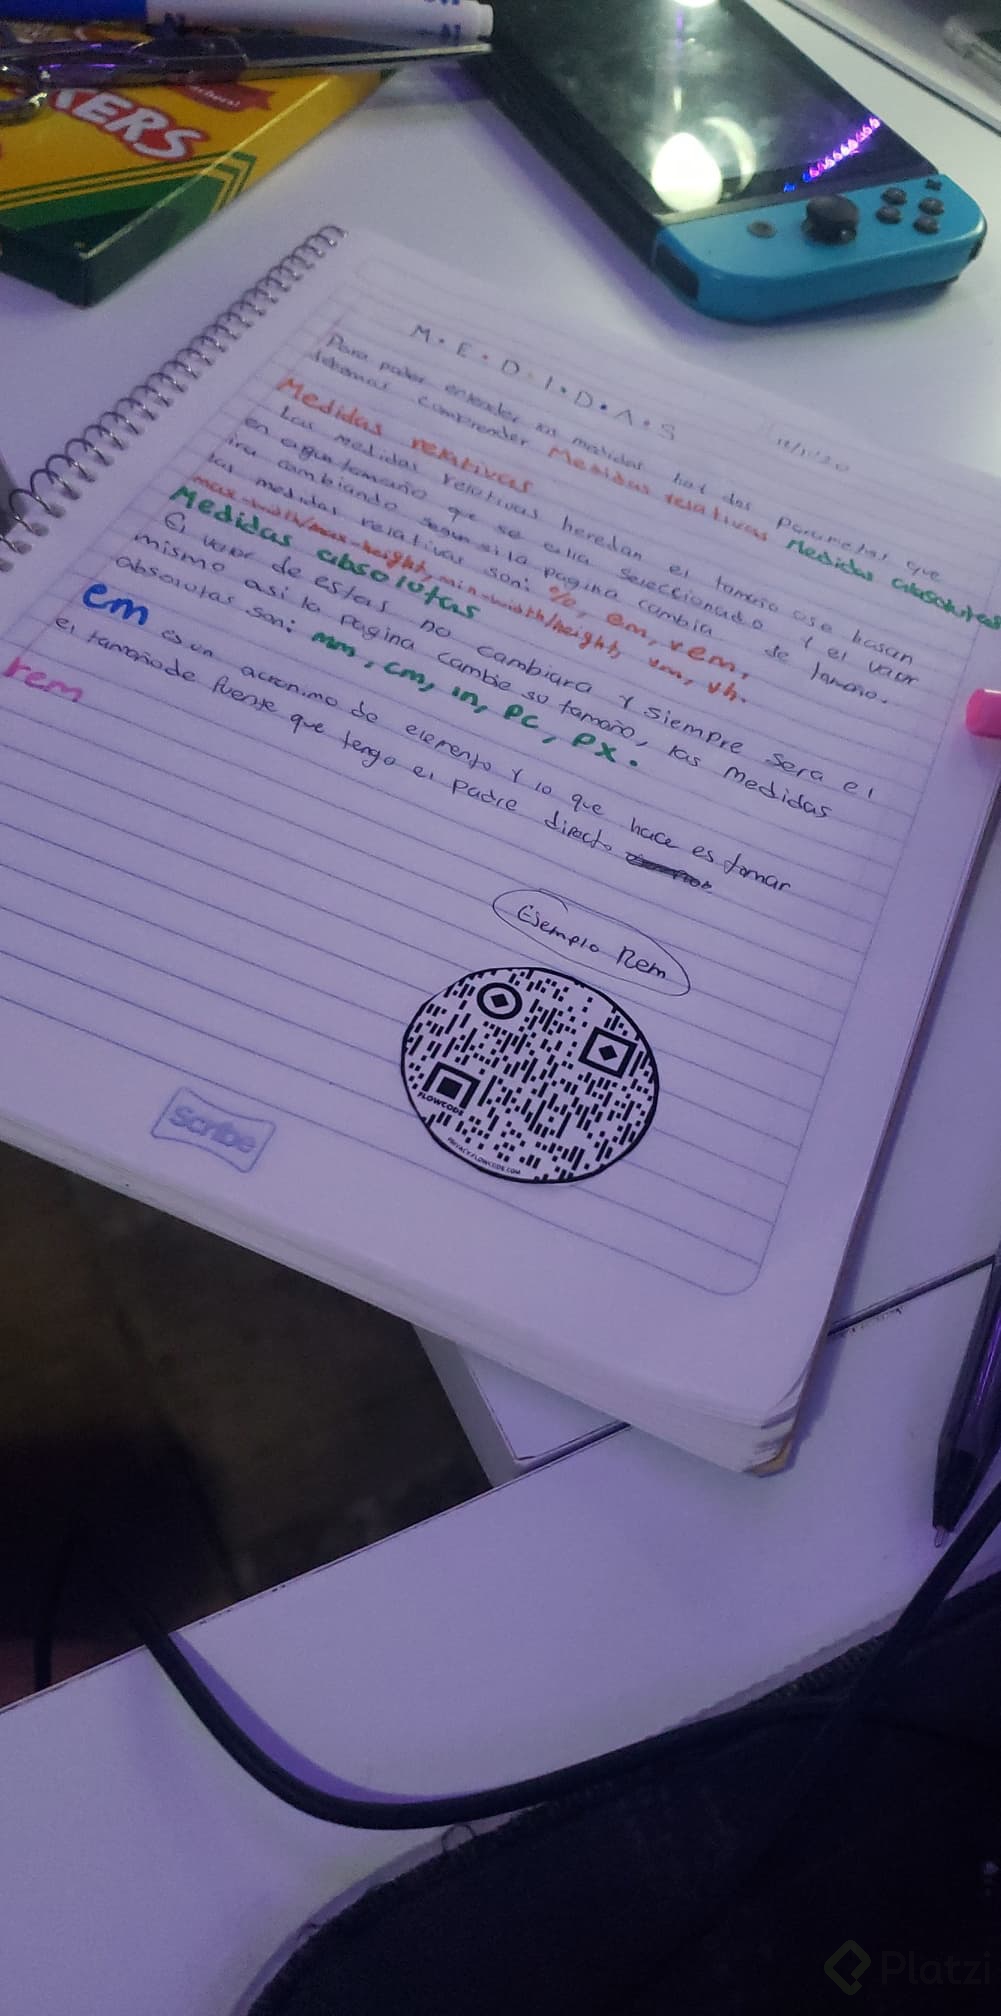 KERS
M.E.D.I.D.A.S
Para poder entender las medidas hay dos parametos que
debemos comprender Medidas relativas Medidas absolutas
Medidas relativas
Las medidas relativas heredan el tamaño o se basan
en algun tamaño que se esta seleccionado y el valor
ira cambiando segun si la pagina cambia de tamaño.
las medidas relativas son: %, em, rem,
max-width/max-height, min-width/height, vm, vh.
Medidas absolutas
El valor de estas no cambiara y siempre sera el
mismo asi la pagina cambie su tamaño, las medidas
absolutas son: mm, cm, in, pc, px.
em es un acronimo de elemento y lo que hace es tomar
el tamaño de fuente que tenga el padre directo
rem
Ejemplo Rem
FLOWCODE
PRIVACY.FLOWCODE.COM
Scribe
Platzi